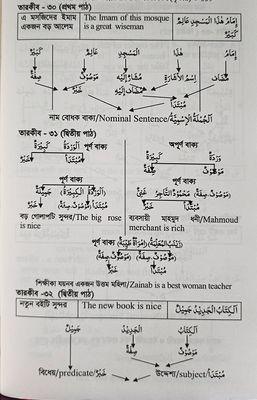 তারকীব - ৩০ (প্রথম পাঠ)
এ মসজিদের ইমাম একজন বড় আলেম
The Imam of this mosque is a great wiseman
إِمَامُ هٰذَا الْمَسْجِدِ عَالِمٌ كَبِيْرٌ
كَبِيْرٌ عَالِمٌ الْمَسْجِدِ هٰذَا إِمَامُ
صِفَةٌ مَوْصُوْفٌ مُشَارٌ إِلَيْهِ اِسْمُ الْاِشَارَةِ مُضَافٌ
خَبَرٌ مُضَافٌ إِلَيْهِ
مُبْتَدَأٌ
নাম বোধক বাক্য/Nominal Sentence/اَلْجُمْلَةُ الْاِسْمِيَّةُ
তারকীব - ৩১ (দ্বিতীয় পাঠ)
পূর্ণ বাক্য অপূর্ণ বাক্য
كَبِيْرَةٌ وَرْدَةٌ
صِفَةٌ مَوْصُوْفٌ
পূর্ণ বাক্য পূর্ণ বাক্য
خَبَرٌ مُبْتَدَأٌ
বড় গোলাপটি সুন্দর/The big rose is nice
ব্যবসায়ী মাহমুদ ধনী/Mahmoud merchant is rich
পূর্ণ বাক্য
مَوْصُوْفٌ صِفَةٌ
خَبَرٌ مُبْتَدَأٌ
শিক্ষীকা যয়নব একজন উত্তম মহিলা/Zainab is a best woman teacher
তারকীব -৩২ (দ্বিতীয় পাঠ)
নতুন বইটি সুন্দর
The new book is nice
اَلْكِتَابُ الْجَدِيْدُ جَمِيْلٌ
جَمِيْلٌ الْجَدِيْدُ اَلْكِتَابُ
صِفَةٌ مَوْصُوْفٌ
বিধেয়/predicate/خَبَرٌ উদ্দেশ্য/subject/مُبْتَدَأٌ